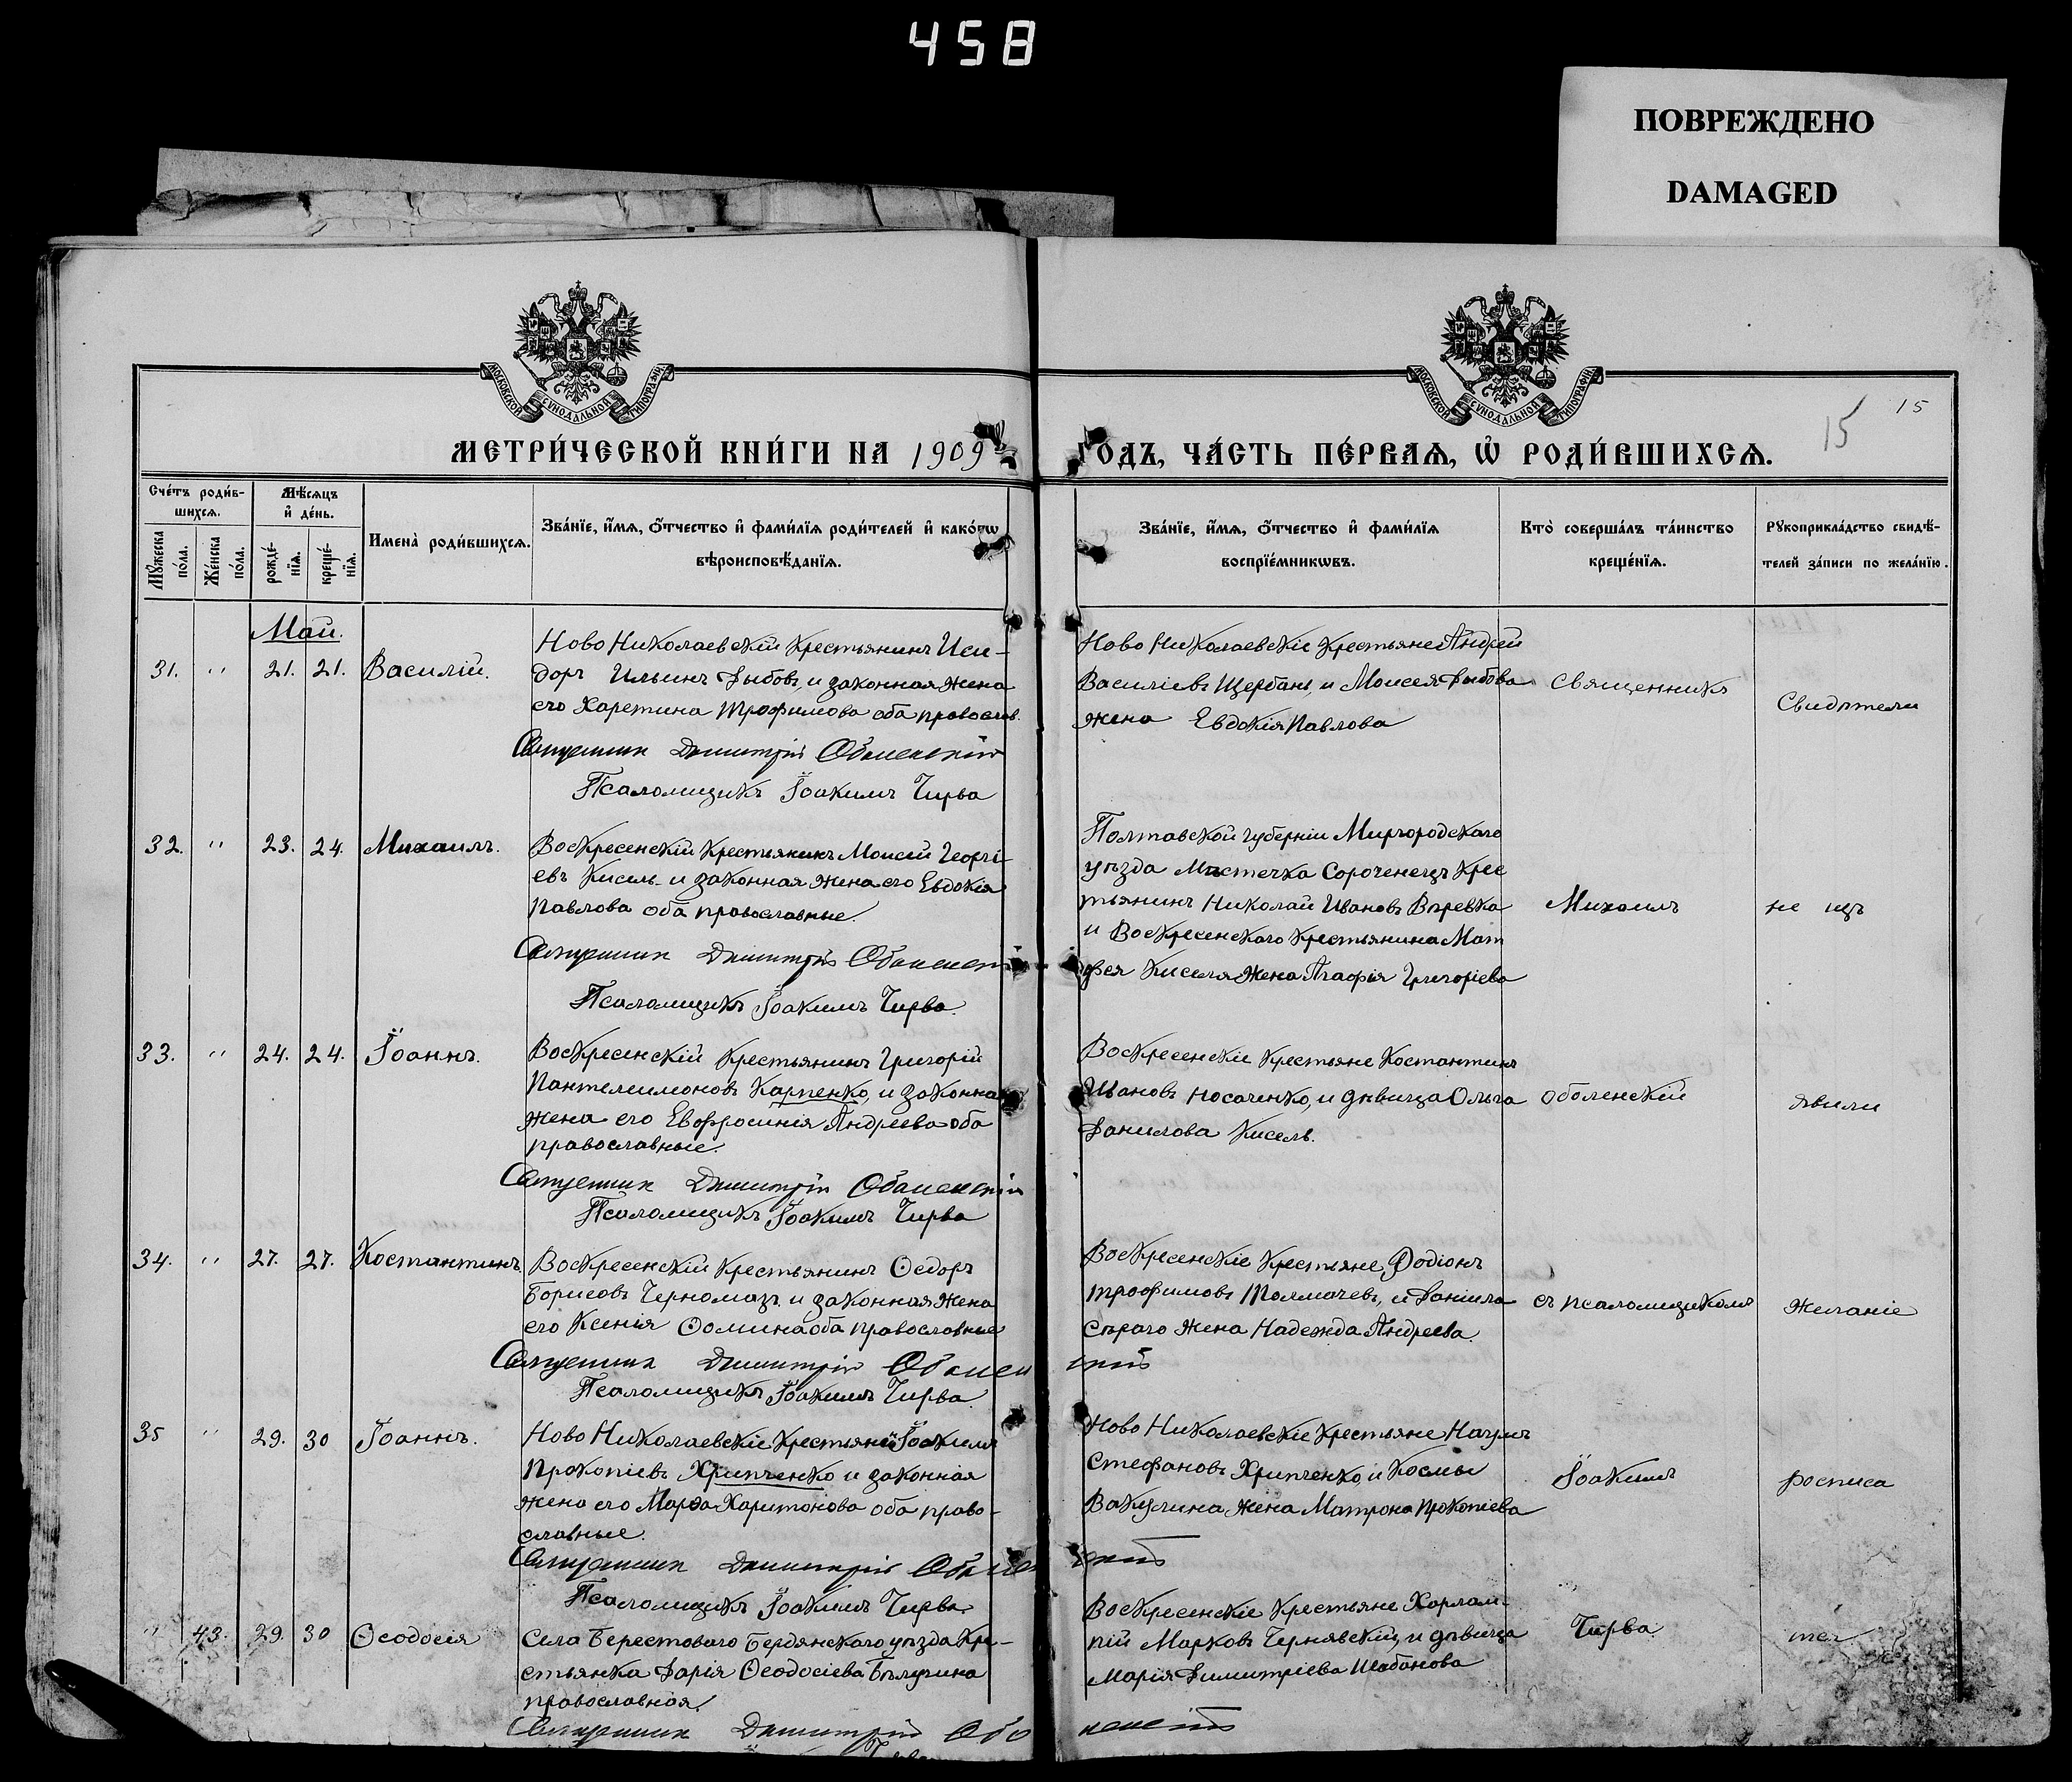 458
ПОВРЕЖДЕНО
DAMAGED
МОСКОВСКОЙ СѴНОДАЛЬНОЙ ТИПОГРАФІИ
МОСКОВСКОЙ СѴНОДАЛЬНОЙ ТИПОГРАФІИ
15 15
МЕТРИ́ЧЕСКОЙ КНИ́ГИ НА 1909
ГОДЪ, ЧА́СТЬ ПЕ́РВАѦ, Ѡ҆ РОДИ́ВШИХСѦ.
Сче́тъ роди́в-
шихсѧ.
Мꙋ́жеска по́ла.
Же́нска по́ла.
Мѣ́сѧцъ
и҆ де́нь.
рожде́-
нїѧ.
креще́-
нїѧ.
Имена̀ роди́вшихсѧ.
Зва́нїе, и҆́мѧ, ѻ҆́тчество и҆ фами́лїѧ роди́телей и҆ како́гѡ
вѣроисповѣ́данїѧ.
Зва́нїе, и҆́мѧ, ѻ҆́тчество и҆ фами́лїѧ
воспрїе́мникѡвъ.
Кто̀ соверша́лъ та́инство
креще́нїѧ.
Рꙋкоприкла́дство свидѣ́-
телей за́писи по жела́нїю.
Май.
31. " 21. 21. Василій.
Ново Николаевскій крестьянинъ Иси-
доръ Ильинъ Дыбовъ, и законная жена
его Харетина Трофимова оба православ.
Священник Димитрій Оболенскій
Псаломщикъ Іоакимъ Чирва
Ново Николаевскіе крестьяне Андрей
Василіевъ Щербань, и Моисея Дыбова
жена Евдокія Павлова
Священникъ
Свидѣтели
32. " 23. 24. Михаилъ.
Воскресенскій крестьянинъ Моисей Георгі-
евъ Кисель и законная жена его Евдокія
Павлова оба православные.
Священник Димитрій Оболенск
Псаломщикъ Іоакимъ Чирва.
Полтавской губерніи Миргородскаго
уѣзда Мѣстечка Сороченецъ Крес
тьянинъ Николай Ивановъ Вѣревка
и Воскресенскаго крестьянина Мат
фея Киселя жена Агафія Григоріева
Михаилъ
не изъ
33. " 24. 24. Іоаннъ.
Воскресенскій крестьянинъ Григорій
Пантелимоновъ Карпенко, и законна
жена его Евфросинія Андреева оба
православные.
Священник Димитрій Оболенскій
Псаломщикъ Іоакимъ Чирва
Воскресенскіе крестьяне Костантинъ
Ивановъ Носаченко, и дѣвица Ольга
Данилова Кисель.
Оболенскій
явили
34. " 27. 27. Костантинъ.
Воскресенскій крестьянинъ Ѳедоръ
Борисовъ Черномазъ и законная жена
его Ксенія Ѳомина оба православные
Священник Димитрій Оболен скій
Псаломщикъ Іоакимъ Чирва.
Воскресенскіе крестьяне Родіонъ
Трофимовъ Толмачевъ, и Даніила
Сѣраго жена Надежда Андреева.
съ псаломщикомъ
желаніе
35 " 29. 30 Іоаннъ.
Ново Николаевскіе крестьяне Іоакимъ
Прокопіевъ Хрипченко и законная
жена его Марѳа Харитонова оба право-
славные.
Священник Димитрій Оболен скій
Псаломщикъ Іоакимъ Чирва.
Ново Николаевскіе крестьяне Наумъ
Стефановъ Хрипченко, и Космы
Вакулина жена Матрона Прокопіева
Іоакимъ
росписа
" 43. 29. 30 Ѳеодосія
Села Берестоваго Бердянскаго уѣзда кре-
стьянка Дарія Ѳеодосіева Бѣлугина
православная.
Священник Димитрій Обо ленскій
Воскресенскіе крестьяне Харлам-
пій Марковъ Чернявскій, и дѣвица
Марія Димитріева Шабанова
Чирва.
тся